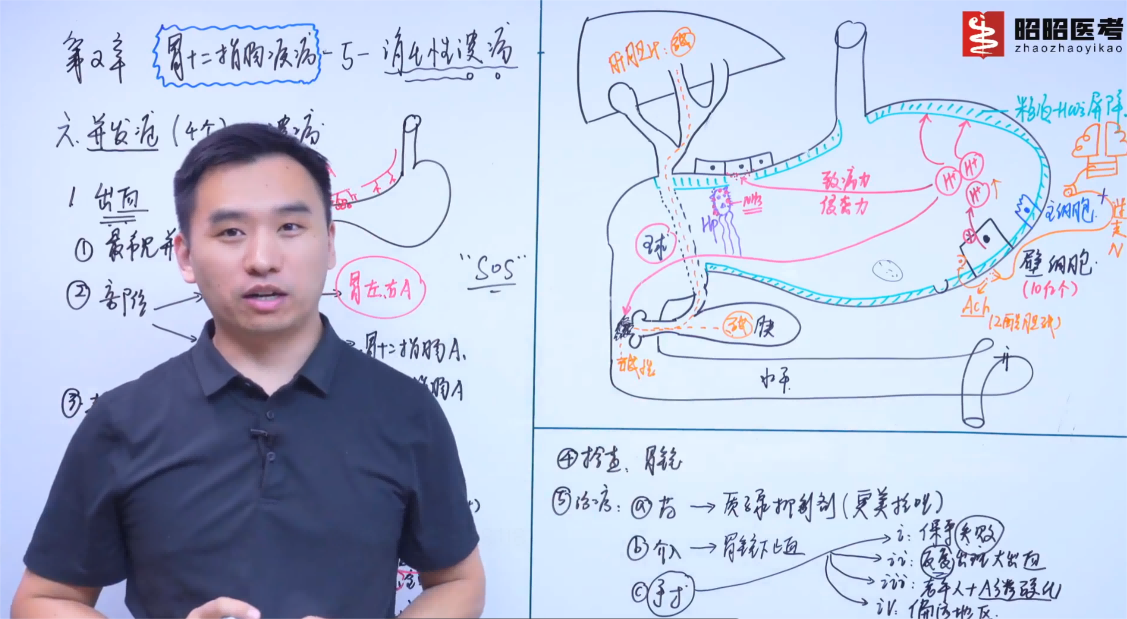 昭昭医考
zhaozhaoyikao
第2章 胃十二指肠疾病-5-消化性溃疡
六.并发症(4个)
1 出血
①最常见并
②部位
胃左.右A
胃十二指肠A.
肠A
③
"SOS"
肝胆汁:
球
Hp
NH3
致病力
侵袭力
H+
H+
H+↑
粘液-HCO3屏障
主细胞
迷走N
壁细胞
(10亿个)
Ach
(乙酰胆碱)
胰
水平
升
④检查:胃镜
⑤治疗:ⓐ药→质子泵抑制剂(奥美拉唑)
ⓑ介入→胃镜下止血
ⓒ手术
i:保守失败
ii:反复出现大出血
iii:老年人+A粥样硬化
iv:偏远地区